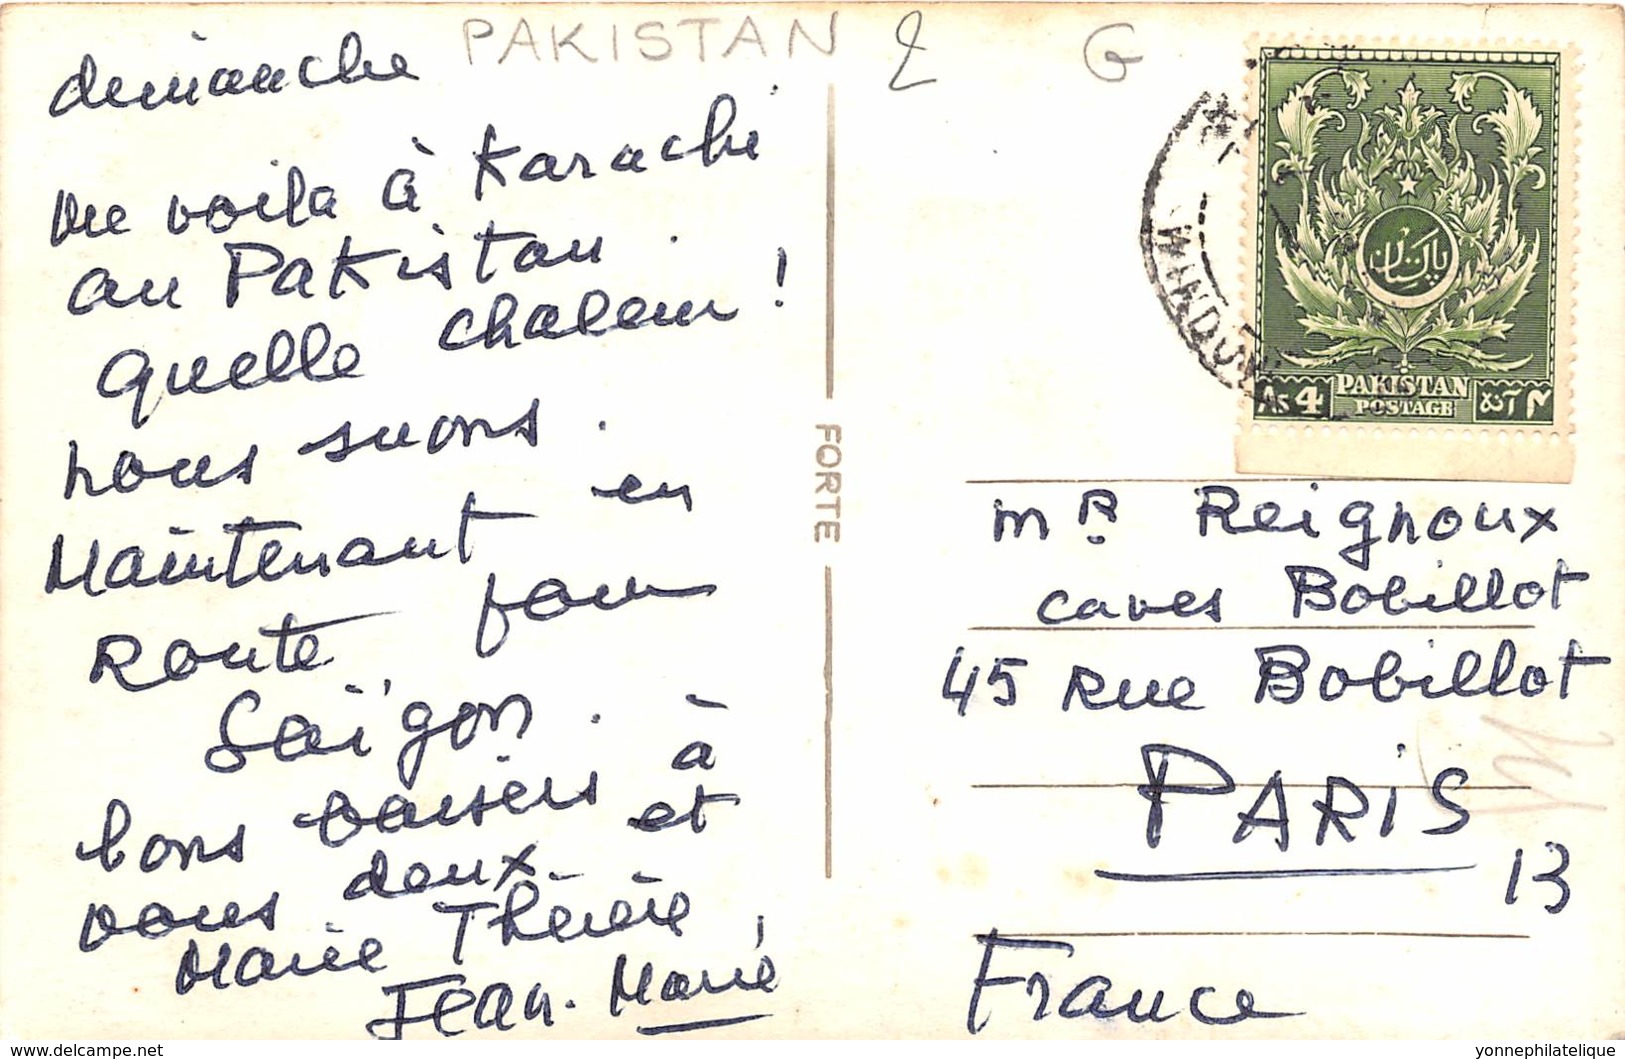 PAKISTAN 2 G
dimanche
Me voila à Karachi
au Pakistan.
quelle chaleur !
nous suons.
Maintenant en
Route pour
Saïgon.
bons baisers à
vous deux et
Marie Thérèse,
Jean-Marie
FORTE
پاکستان
As 4
PAKISTAN
POSTAGE
۴ آنہ
WINDOW
MR Reignoux
caves Bobillot
45 Rue Bobillot
PARIS
13
France
delcampe.net
yonnephilatelique